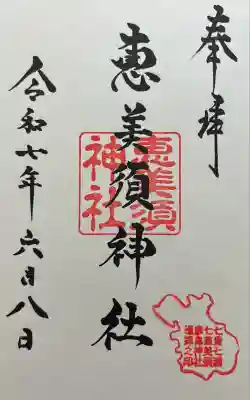 奉拝
恵美須神社
恵美須
神社
令和七年六月八日